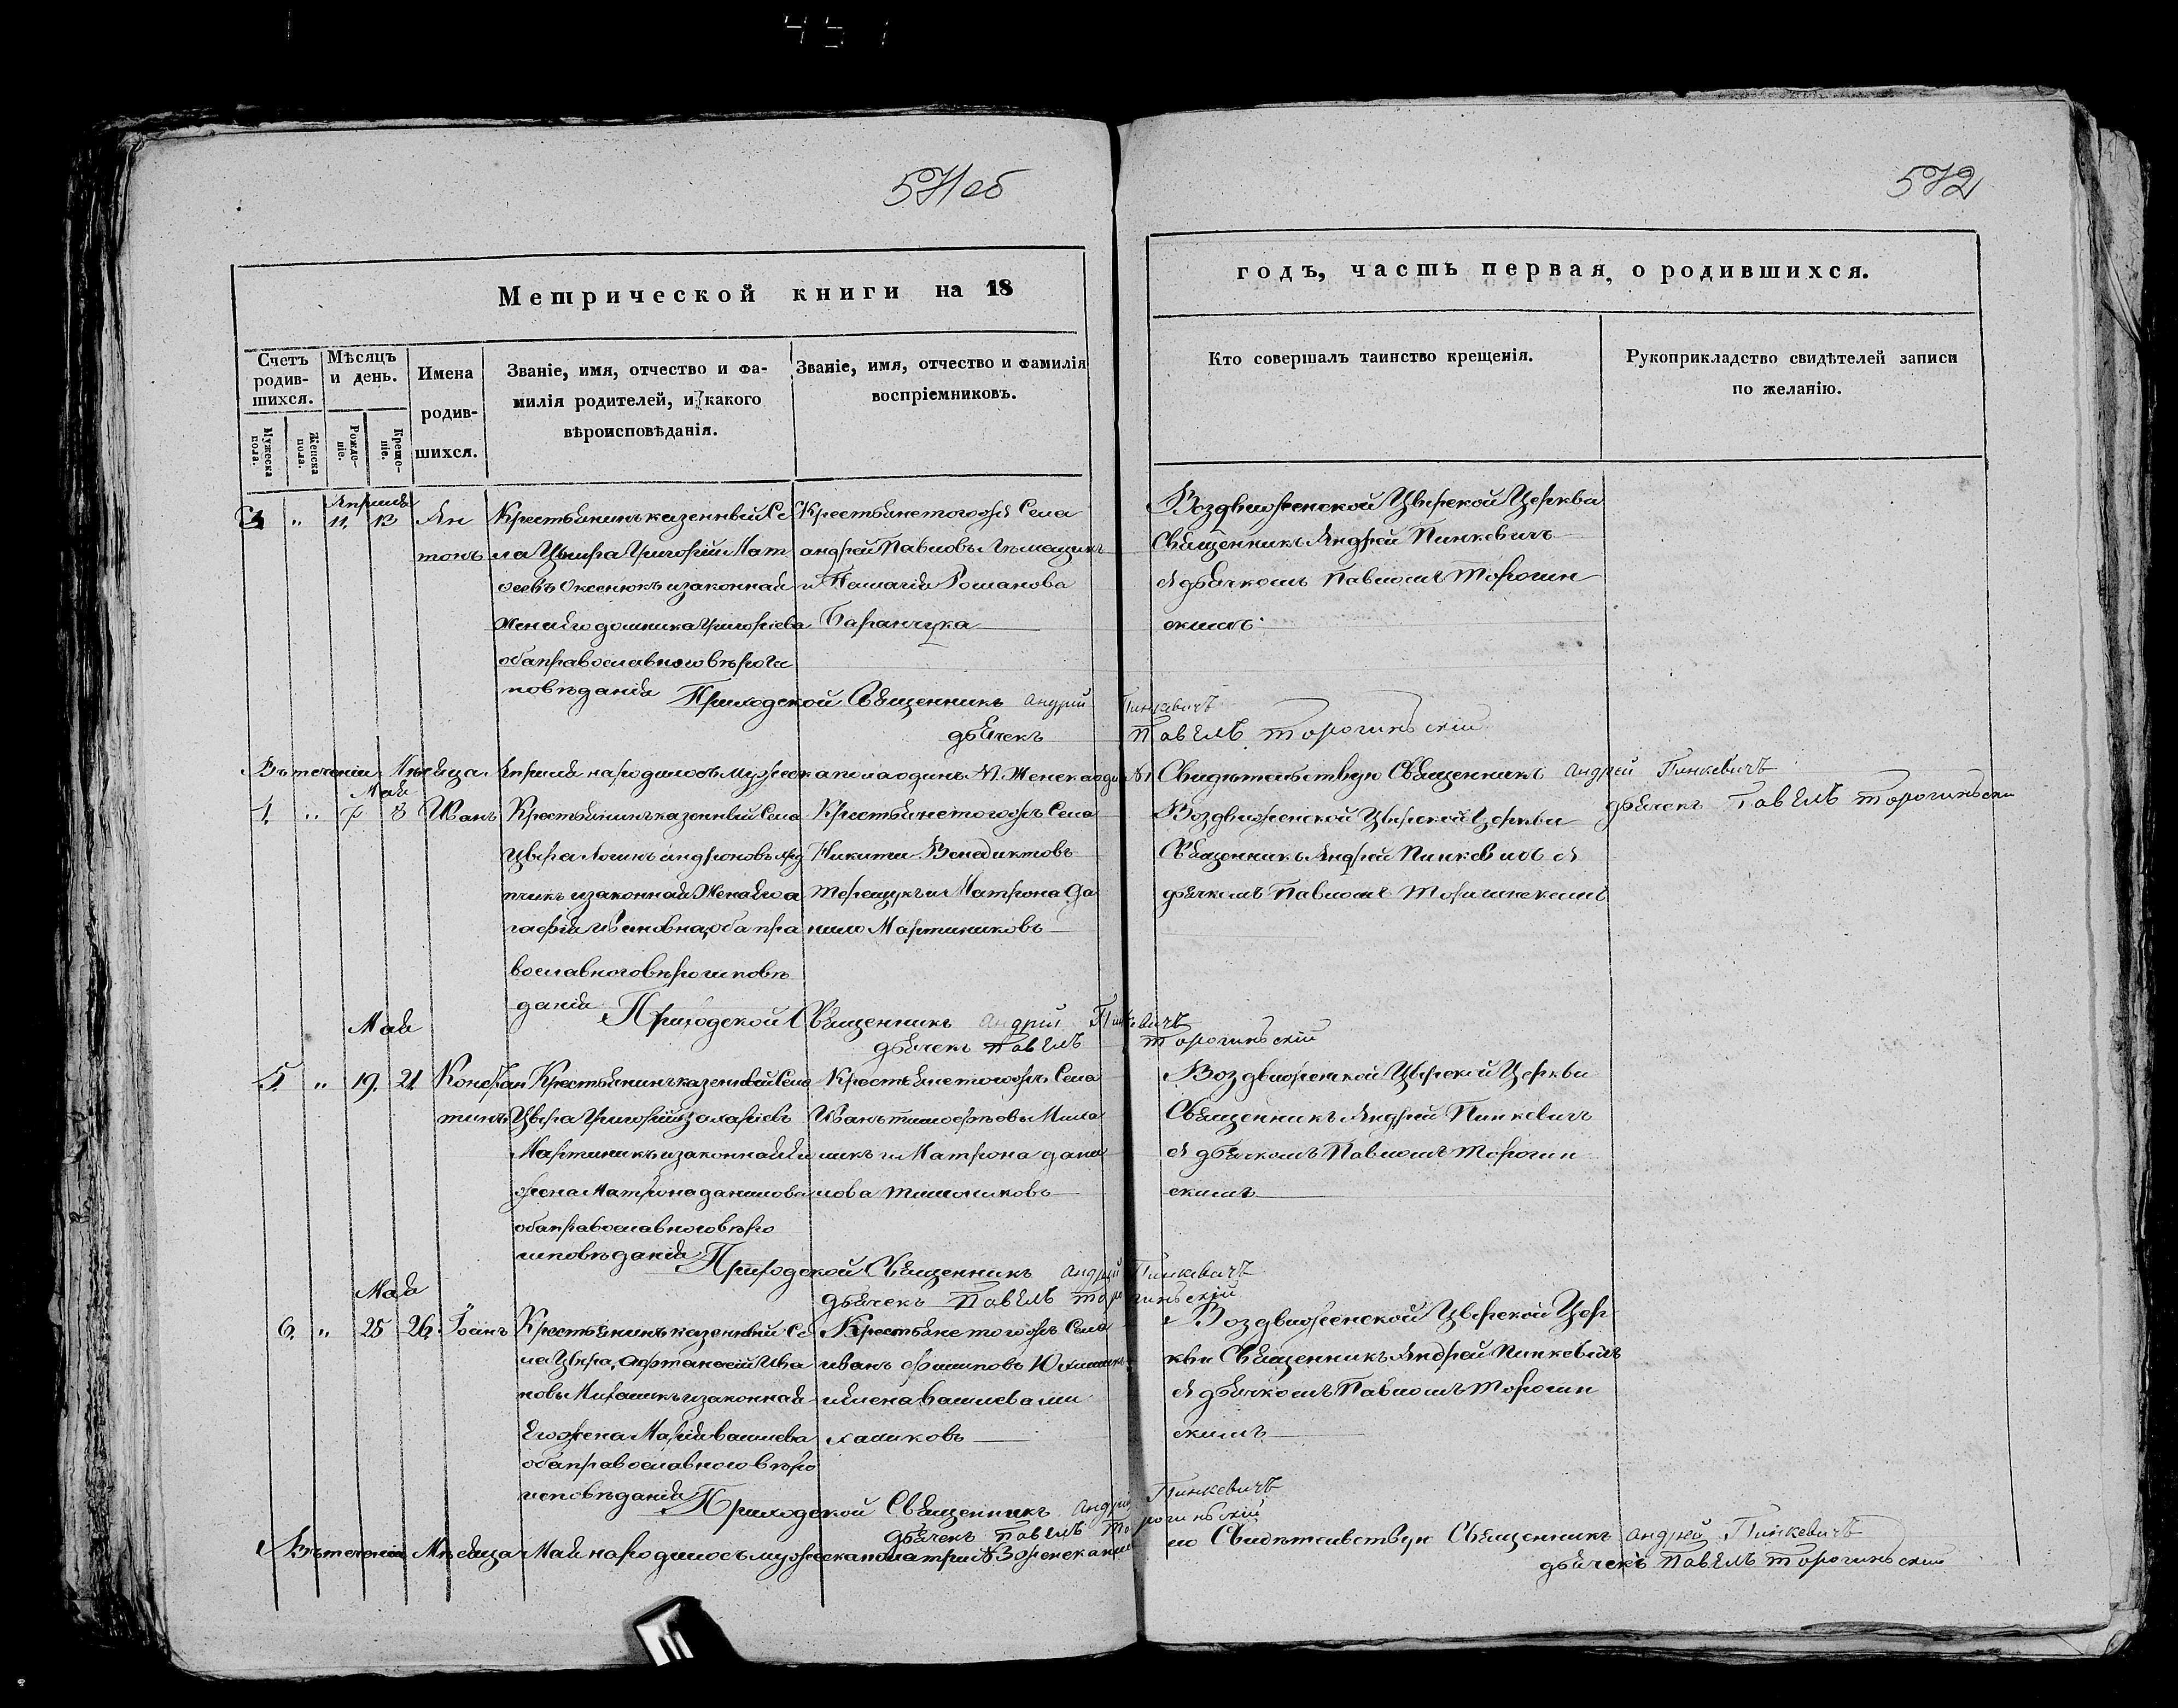 571об
572
Метрической книги на 18
годъ, часть первая, о родившихся.
Счетъ родив-шихся.
Мѣсяцъ и день.
Имена родив-шихся.
Званіе, имя, отчество и фа-
милія родителей, и какого
вѣроисповѣданія.
Званіе, имя, отчество и фамилія
воспріемниковъ.
Кто совершалъ таинство крещенія.
Рукоприкладство свидѣтелей записи
по желанію.
Мужеска пола.
Женска пола.
Рожде-ніе.
Креще-ніе.
Априля
3 " 11. 13
Ан
тонъ
Крестьянинъ казенный Се
ла Цвира Григорій Мат
феевъ Оксенюкъ изаконная
жена его домника Григориева
оба православного вѣроис
повѣданія
Крестьяне тогожъ Села
андрей Павловъ
и Пелагия Романова
Баранчука
Воздвиженской Цвирской Церкви
Священникъ Андрей Пинкевичъ
с дьячкомъ Павломъ Торогин
скимъ
Приходской Священникъ андрий Пинкевичъ
дьячекъ Павелъ торогинъский
Въ течении Мѣсяца Априля народилось мужеска пола одинъ №1. Женска один №1 Свидѣтельствую Священникъ андрей Пинкевичъ
дьячекъ Павелъ торогинъски
Мая
4. " 8
Иванъ
Крестьянинъ казенный Села
Цвира Логинъ андроновъ
изаконная Жена его а
гафия Ивановна, оба пра
вославного вѣроисповѣ
дания
Крестьяне тогожъ Села
Никити Венедиктовъ
терещукъ и Матрона Да
нило Мартиниковъ
Воздвиженской Цвирской Церкви
Священникъ Андрей Пинкевичъ с
дьячкомъ Павломъ Торогинскимъ
Приходской Священникъ андрий Пинкевичъ
дьячекъ Павелъ торогинъский
Мая
5. " 19. 21
Констан
тинъ
Крестьянинъ казенный Села
Цвира Григорий захариевъ
Мартиникъ изаконная
жена Матрона данилова
оба православного вѣро
исповѣдания
Крестьяне тогожъ Села
Иванъ тимофѣовъ Миха
ликъ и Матрона дани
лова тимчиковъ
Воздвиженской Цвирской Церкви
Священникъ Андрей Пинкевичъ
с дьячкомъ Павломъ Торогин
скимъ
Приходской Священникъ андрий Пинкевичъ
дьячекъ Павелъ торогинъский
Мая
6. " 25 26.
Іоанъ
Крестьянинъ казенный Се
ла Цвира, Афтанасий Ива
новъ Михаликъ изаконная
Его жена Мария василева
оба православного вѣро
исповѣдания
Крестьяне тогожъ Села
иванъ филиповъ
и Елена василева ми
халиковъ
Воздвиженской Цвирской Цер
кви Священникъ Андрей Пинкевичъ
с дьячкомъ Павломъ Торогин
скимъ
Приходской Священникъ андрий Пинкевичъ
дьячекъ Павелъ торогинъский
Въ течении Мѣсяца Мая народилось мужеска пола три №3 женска Свидѣтельствую Священникъ андрей Пинкевичъ
дьячекъ Павелъ торогинъский